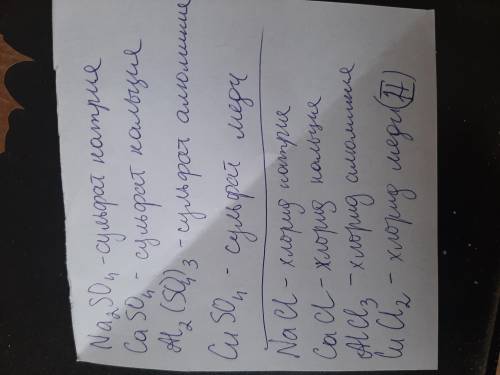 Na₂SO₄ - сульфат натрия
CaSO₄ - сульфат кальция
Al₂(SO₄)₃ - сульфат алюминия
CuSO₄ - сульфат меди
NaCl - хлорид натрия
CaCl - хлорид кальция
AlCl₃ - хлорид алюминия
CuCl₂ - хлорид меди (II)